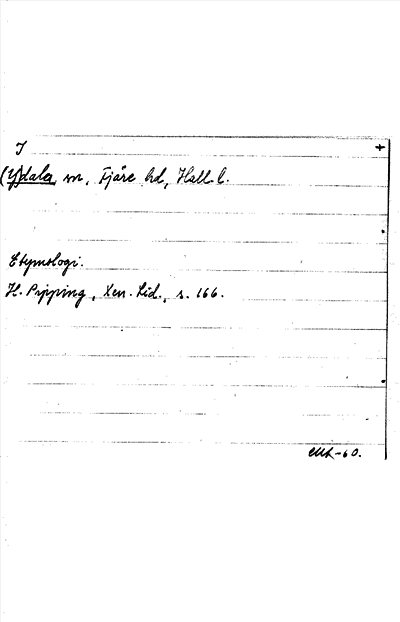 I +
(Y)dala, sn, Fjäre hd, Hall. l.
Etymologi:
H. Pipping, Xen. Lid., s. 166.
-60.